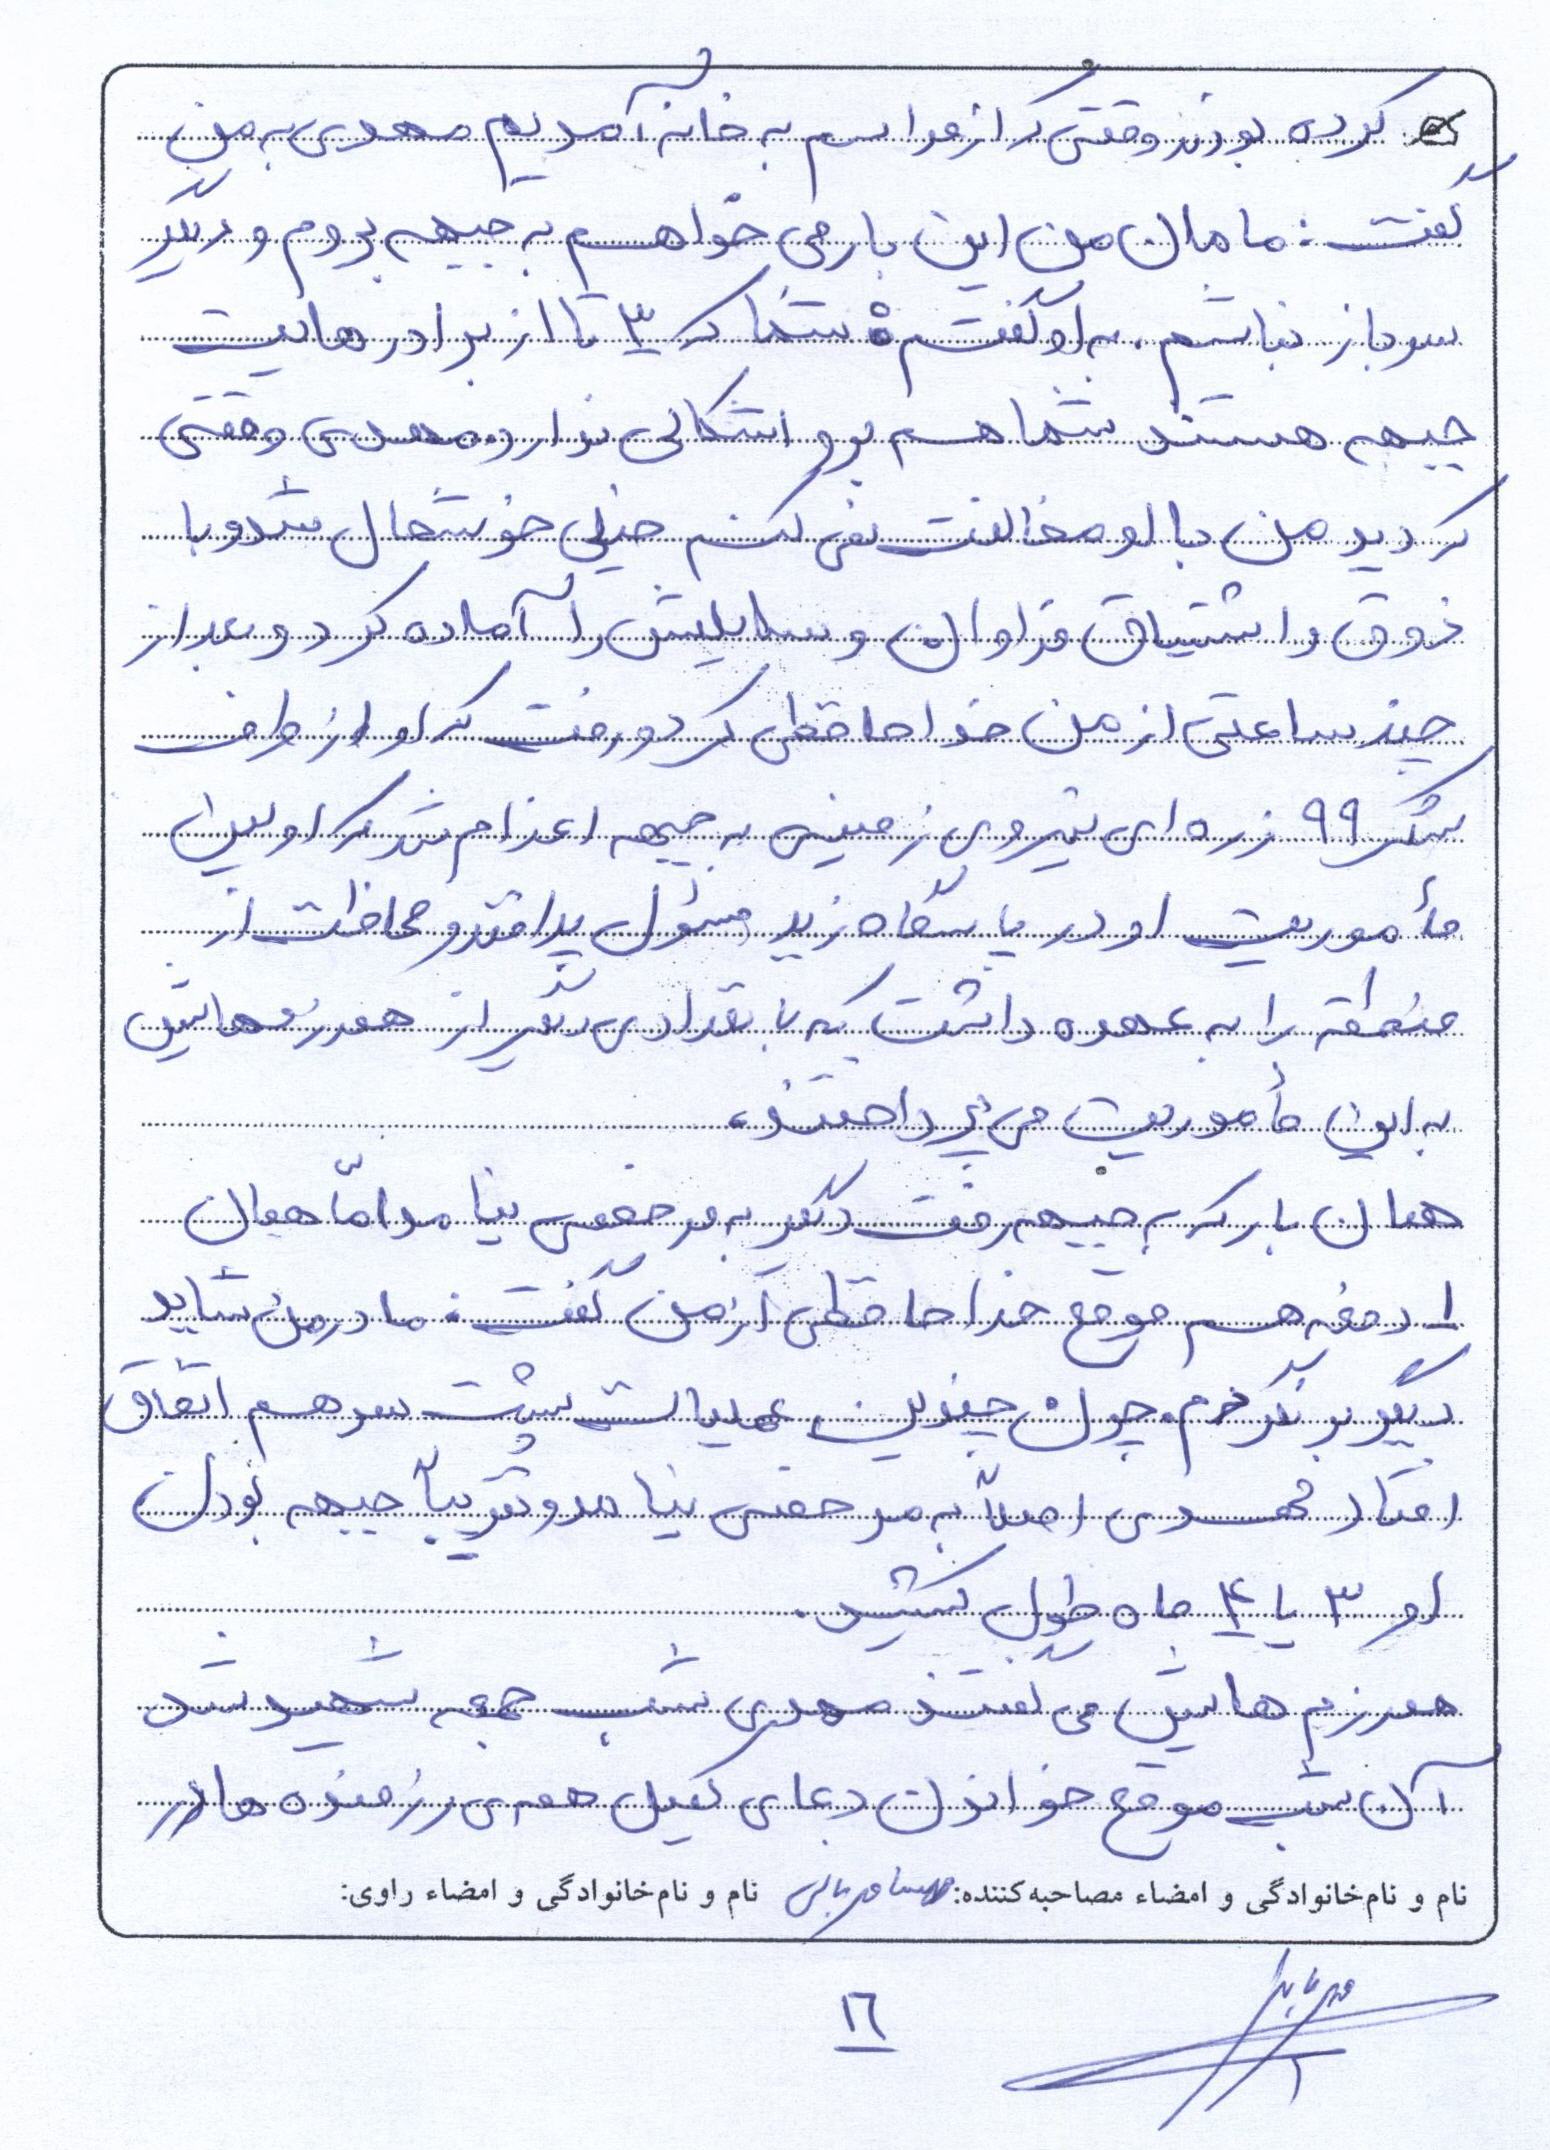 کرده بودند وقتی که از مراسم به خانه آمدیم مهدی به من
گفت: مامان من این بار می خواهم به جبهه بروم و دیگر
سرباز نباشم. به او گفتم شما که ۳ تا از برادرهایت
جبهه هستند شما هم برو اشکالی ندارد. مهدی وقتی
که دید من با او مخالفت نمی کنم خیلی خوشحال شد و با
ذوق و اشتیاق فراوان وسایلیش را آماده کرد و بعد از
چند ساعتی از من خداحافظی کرد و رفت که او از طرف
لشکر ۹۹ زره ای نیروی زمینی به جبهه اعزام شد که اولین
مأموریت او در پاسگاه زید مسئول پدافند و محافظت از
منطقه را به عهده داشت که با تعدادی دیگر از همرزمهایش
به این مأموریت می پرداختند.
همان بار که به جبهه رفت دیگر به مرخصی نیامد امّا همان
۱ دفعه هم موقع خداحافظی از من گفت: مادر من شاید
دیگر برنگردم. چون چندین عملیات پشت سر هم اتفاق
افتاد مهدی اصلاً به مرخصی نیامد و تقریباً جبهه بودن
او ۳ یا ۴ ماه طول کشید.
همرزم هایش می گفتند مهدی شب جمعه شهید شد
آن شب موقع خواندن دعای کمیل همه ی رزمنده ها در
نام و نام‌خانوادگی و امضاء مصاحبه‌کننده: نام و نام‌خانوادگی و امضاء راوی:
١٦